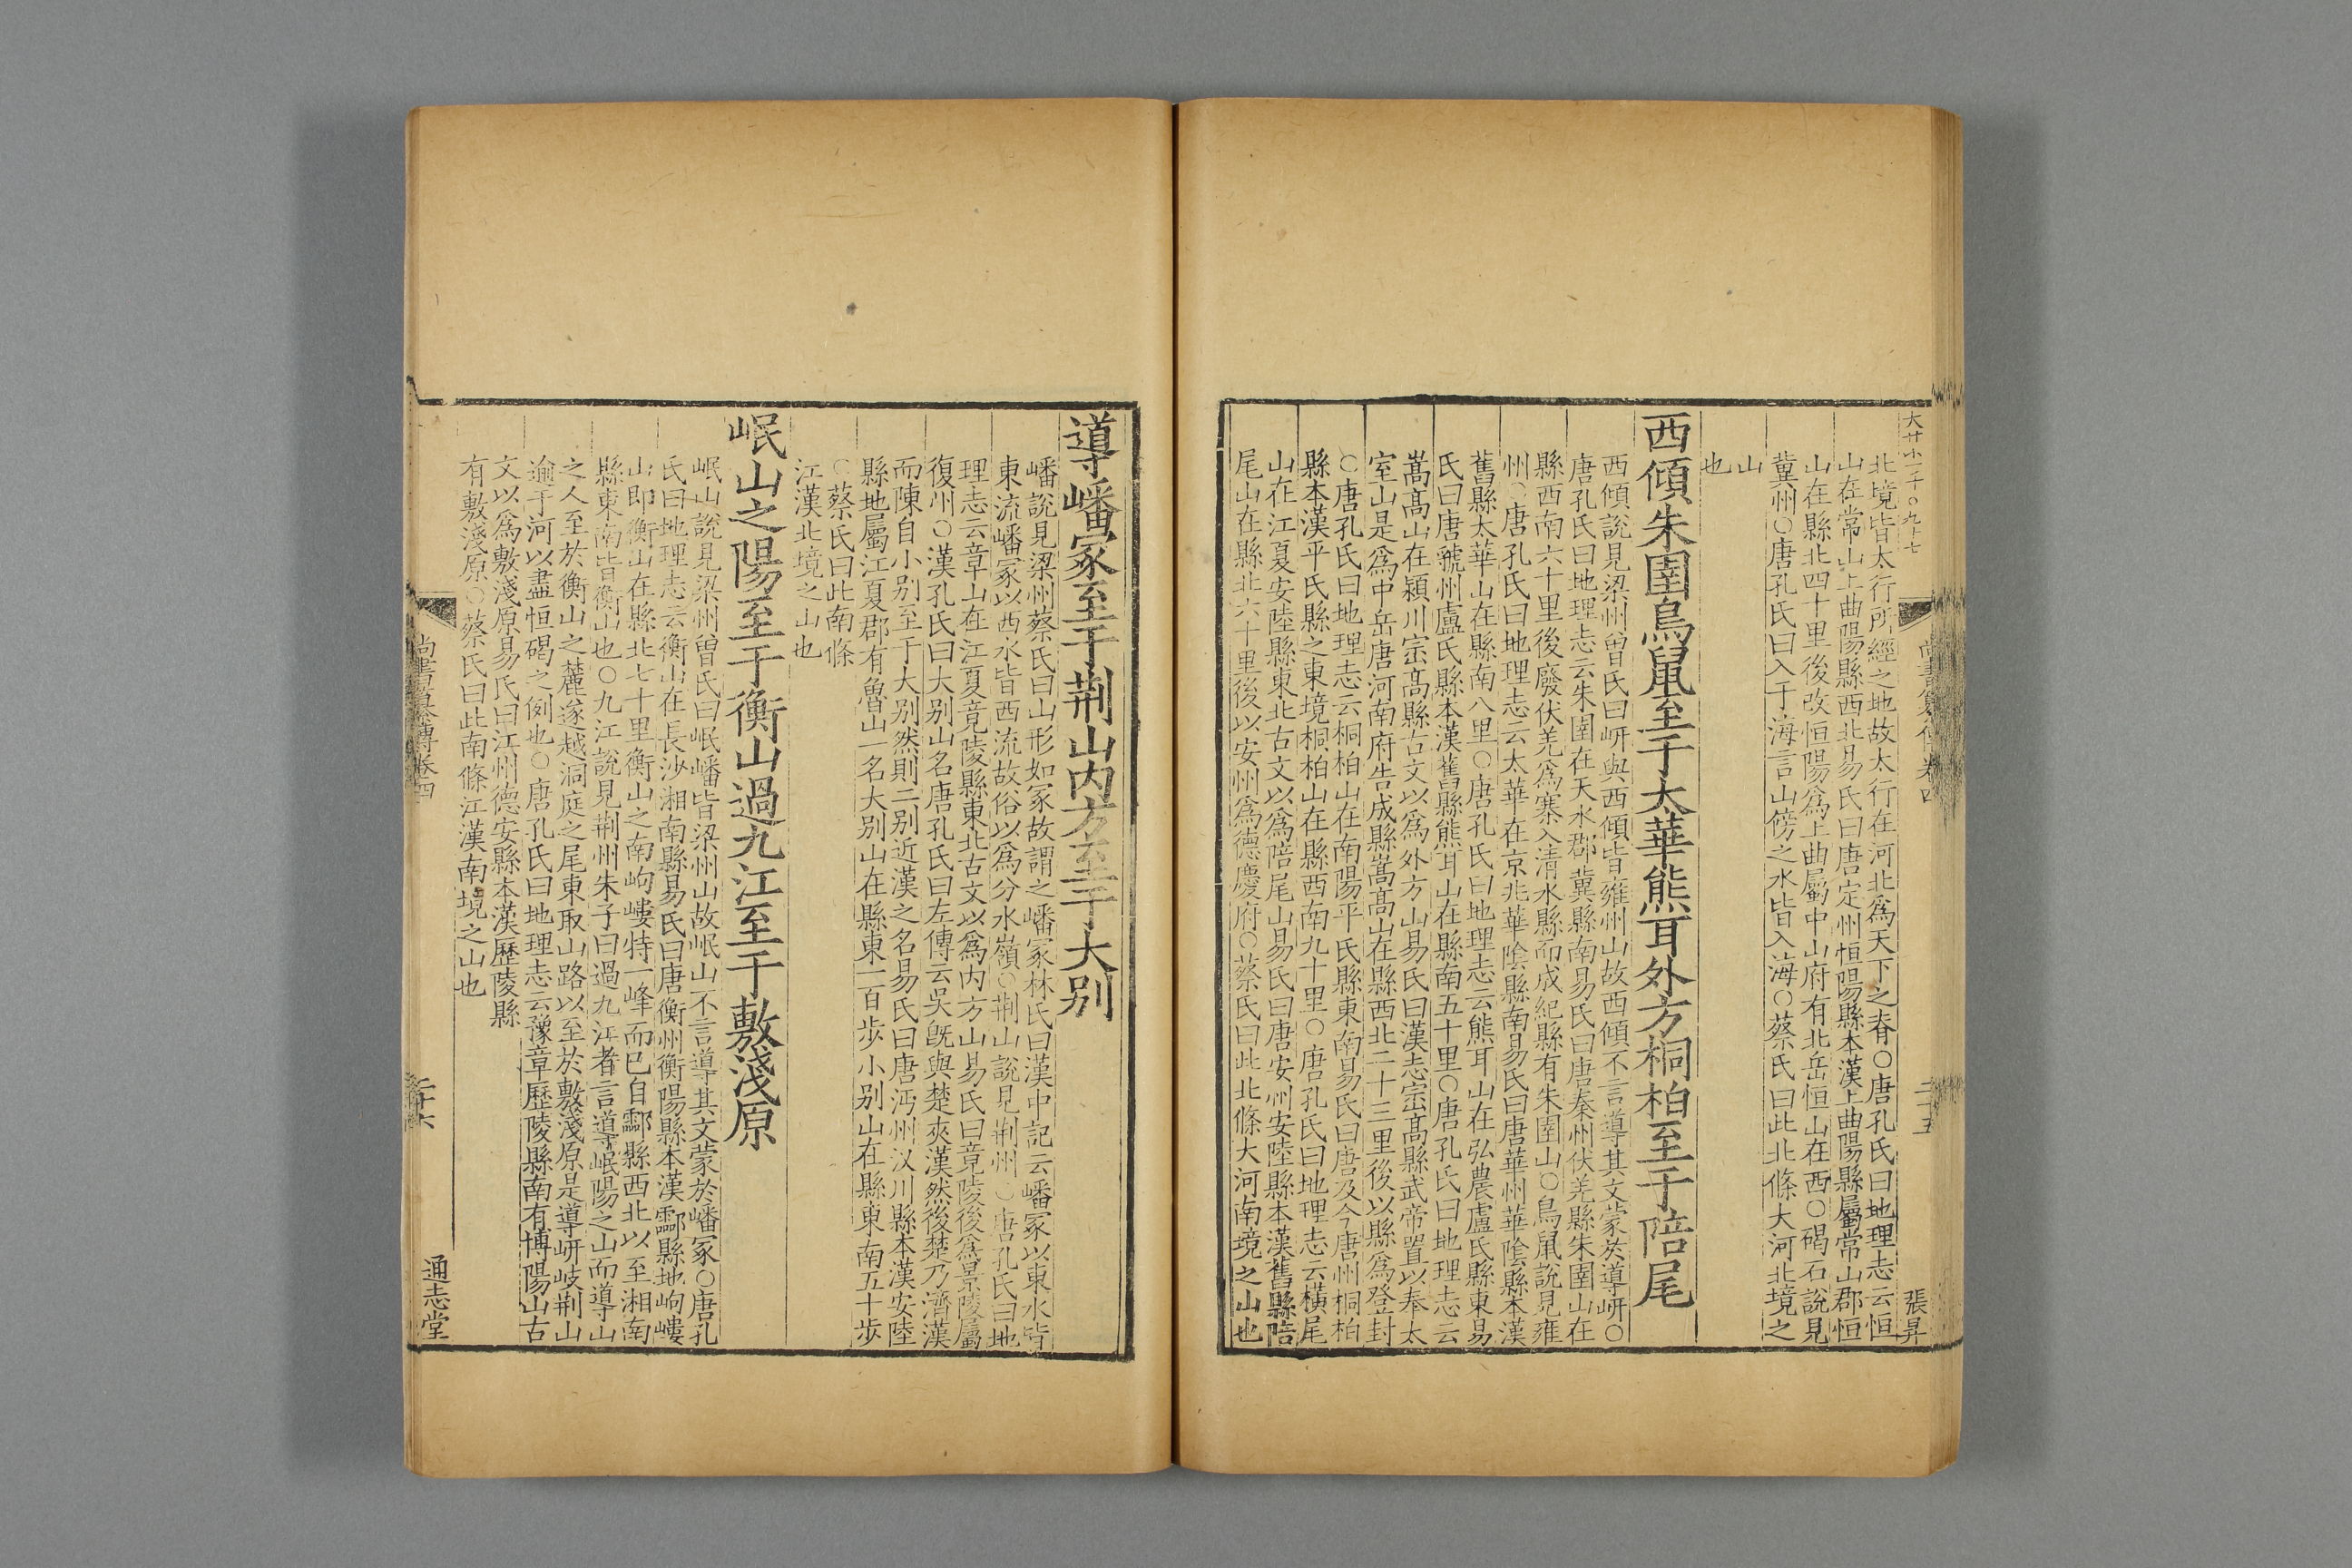 大廿小一千〇九十七
尚書纂傳卷四
二十五
張昇
北境皆太行所經之地故太行在河北爲天下之脊〇唐孔氏曰地理志云恒
山在常山上曲陽縣西北易氏曰唐定州恒陽縣本漢上曲陽縣屬常山郡恒
山在縣北四十里後改恒陽爲上曲屬中山府有北岳恒山在西〇碣石說見
冀州〇唐孔氏曰入于海言山傍之水皆入海〇蔡氏曰此北條大河北境之
山
也
西傾朱圉鳥鼠至于太華熊耳外方桐柏至于陪尾
西傾說見梁州曾氏曰岍與西傾皆雍州山故西傾不言導其文蒙於導岍〇
唐孔氏曰地理志云朱圉在天水郡冀縣南易氏曰唐秦州伏羌縣朱圉山在
縣西南六十里後廢伏羌爲寨入清水縣而成紀縣有朱圉山〇鳥鼠說見雍
州〇唐孔氏曰地理志云太華在京兆華陰縣南易氏曰唐華州華陰縣本漢
舊縣太華山在縣南八里〇唐孔氏曰地理志云熊耳山在弘農盧氏縣東易
氏曰唐虢州盧氏縣本漢舊縣熊耳山在縣南五十里〇唐孔氏曰地理志云
嵩高山在潁川崈高縣古文以爲外方山易氏曰漢志崈高縣武帝置以奉太
室山是爲中岳唐河南府告成縣嵩高山在縣西北二十三里後以縣爲登封
〇唐孔氏曰地理志云桐柏山在南陽平氏縣東南易氏曰唐及今唐州桐柏
縣本漢平氏縣之東境桐柏山在縣西南九十里〇唐孔氏曰地理志云橫尾
山在江夏安陸縣東北古文以爲陪尾山易氏曰唐安州安陸縣本漢舊縣陪
尾山在縣北六十里後以安州爲德慶府〇蔡氏曰此北條大河南境之山也
導嶓冢至于荆山内方至于大别
嶓說見梁州蔡氏曰山形如冢故謂之嶓冢林氏曰漢中記云嶓冢以東水皆
東流嶓冢以西水皆西流故俗以爲分水嶺〇荆山說見荆州〇唐孔氏曰地
理志云章山在江夏竟陵縣東北古文以爲内方山易氏曰竟陵後爲景陵屬
復州〇漢孔氏曰大别山名唐孔氏曰左傳云吳旣與楚夾漢然後楚乃濟漢
而陳自小别至于大别然則二别近漢之名易氏曰唐沔州汊川縣本漢安陸
縣地屬江夏郡有魯山一名大别山在縣東一百步小别山在縣東南五十步
〇蔡氏曰此南條
江漢北境之山也
岷山之陽至于衡山過九江至于敷淺原
岷山說見梁州曾氏曰岷嶓皆梁州山故岷山不言導其文蒙於嶓冢〇唐孔
氏曰地理志云衡山在長沙湘南縣易氏曰唐衡州衡陽縣本漢酃縣地岣嶁
山即衡山在縣北七十里衡山之南岣嶁特一峰而已自酃縣西北以至湘南
縣東南皆衡山也〇九江說見荆州朱子曰過九江者言導岷陽之山而導山
之人至於衡山之麓遂越洞庭之尾東取山路以至於敷淺原是導岍岐荆山
逾于河以盡恒碣之例也〇唐孔氏曰地理志云豫章歷陵縣南有博陽山古
文以爲敷淺原易氏曰江州德安縣本漢歷陵縣
有敷淺原〇蔡氏曰此南條江漢南境之山也
尚書纂傳卷四
二十六
通志堂